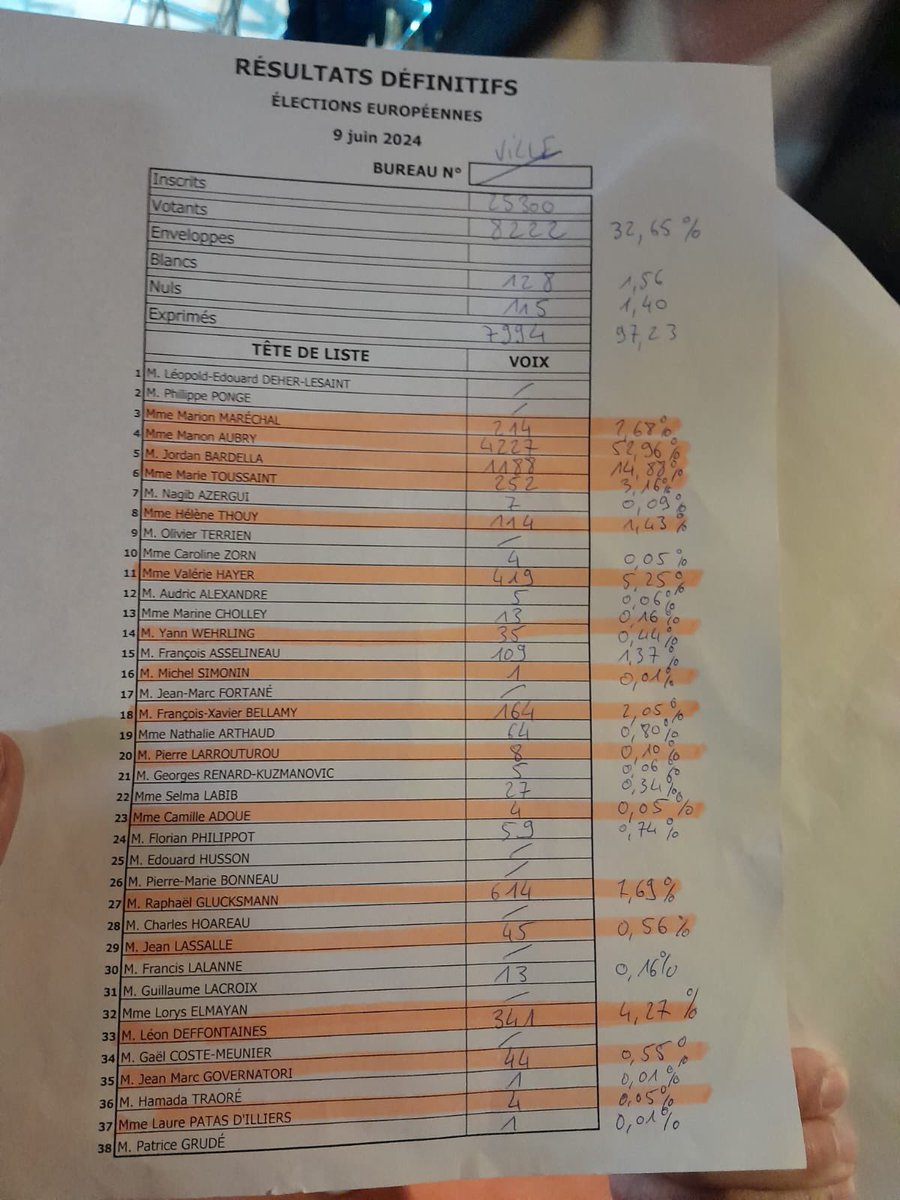 RÉSULTATS DÉFINITIFS
ÉLECTIONS EUROPÉENNES
9 juin 2024
BUREAU N° VILLE
Inscrits 25300
Votants 8222 32,65 %
Enveloppes
Blancs 128 1,56
Nuls 115 1,40
Exprimés 7994 97,23
TÊTE DE LISTE VOIX
1 M. Léopold-Edouard DEHER-LESAINT /
2 M. Philippe PONGE /
3 Mme Marion MARÉCHAL 214 2,68%
4 Mme Manon AUBRY 4227 52,96%
5 M. Jordan BARDELLA 1188 14,88%
6 Mme Marie TOUSSAINT 252 3,16%
7 M. Nagib AZERGUI 7 0,09%
8 Mme Hélène THOUY 114 1,43%
9 M. Olivier TERRIEN /
10 Mme Caroline ZORN 4 0,05%
11 Mme Valérie HAYER 419 5,25%
12 M. Audric ALEXANDRE 5 0,06%
13 Mme Marine CHOLLEY 13 0,16%
14 M. Yann WEHRLING 35 0,44%
15 M. François ASSELINEAU 109 1,37%
16 M. Michel SIMONIN 1 0,01%
17 M. Jean-Marc FORTANÉ /
18 M. François-Xavier BELLAMY 164 2,05%
19 Mme Nathalie ARTHAUD 64 0,80%
20 M. Pierre LARROUTUROU 8 0,10%
21 M. Georges RENARD-KUZMANOVIC 5 0,06%
22 Mme Selma LABIB 27 0,34%
23 Mme Camille ADOUE 4 0,05%
24 M. Florian PHILIPPOT 59 0,74%
25 M. Edouard HUSSON /
26 M. Pierre-Marie BONNEAU /
27 M. Raphaël GLUCKSMANN 614 7,69%
28 M. Charles HOAREAU /
29 M. Jean LASSALLE 45 0,56%
30 M. Francis LALANNE /
31 M. Guillaume LACROIX 13 0,16%
32 Mme Lorys ELMAYAN /
33 M. Léon DEFFONTAINES 341 4,27%
34 M. Gaël COSTE-MEUNIER /
35 M. Jean Marc GOVERNATORI 44 0,55%
36 M. Hamada TRAORÉ 1 0,01%
37 Mme Laure PATAS D'ILLIERS 4 0,05%
38 M. Patrice GRUDÉ 1 0,01%